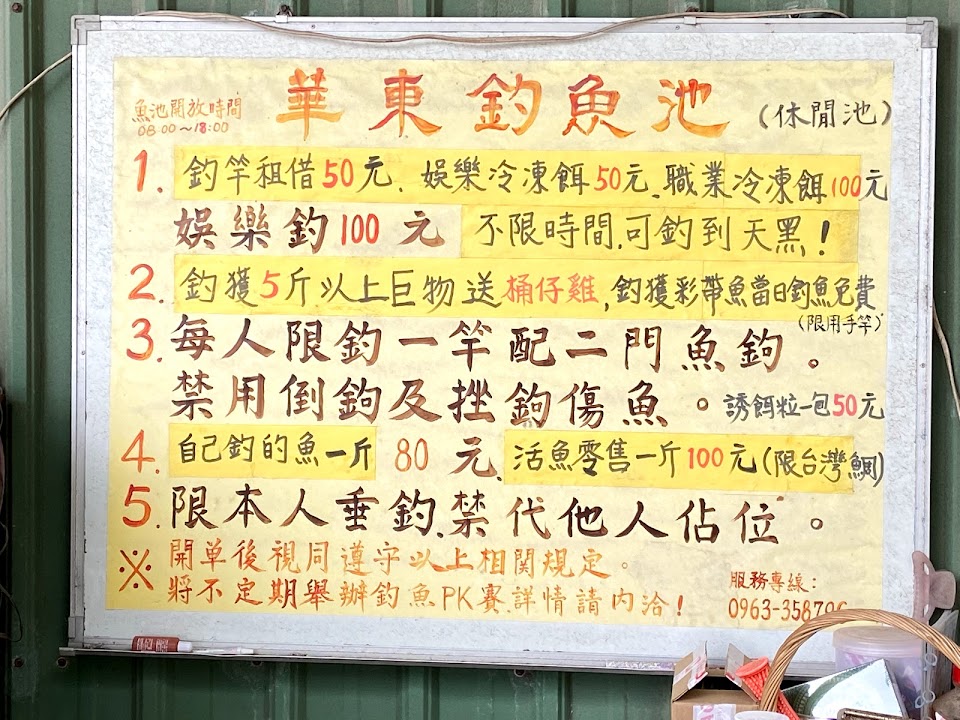 華東釣魚池 (休閒池)
魚池開放時間
08:00~18:00
1. 釣竿租借50元. 娛樂冷凍餌50元. 職業冷凍餌100元
娛樂釣100元 不限時間.可釣到天黑!
2. 釣獲5斤以上巨物送桶仔雞,釣獲彩帶魚當日釣魚免費
(限用手竿)
3. 每人限釣一竿配二門魚鉤。
禁用倒鉤及挫鉤傷魚。誘餌粒一包50元
4. 自己釣的魚一斤80元. 活魚零售一斤100元(限台灣鯛)
5. 限本人垂釣.禁代他人佔位。
※ 開单後視同遵守以上相關規定。
將不定期舉辦釣魚PK賽詳情請內洽!
服務專線:
0963-3587